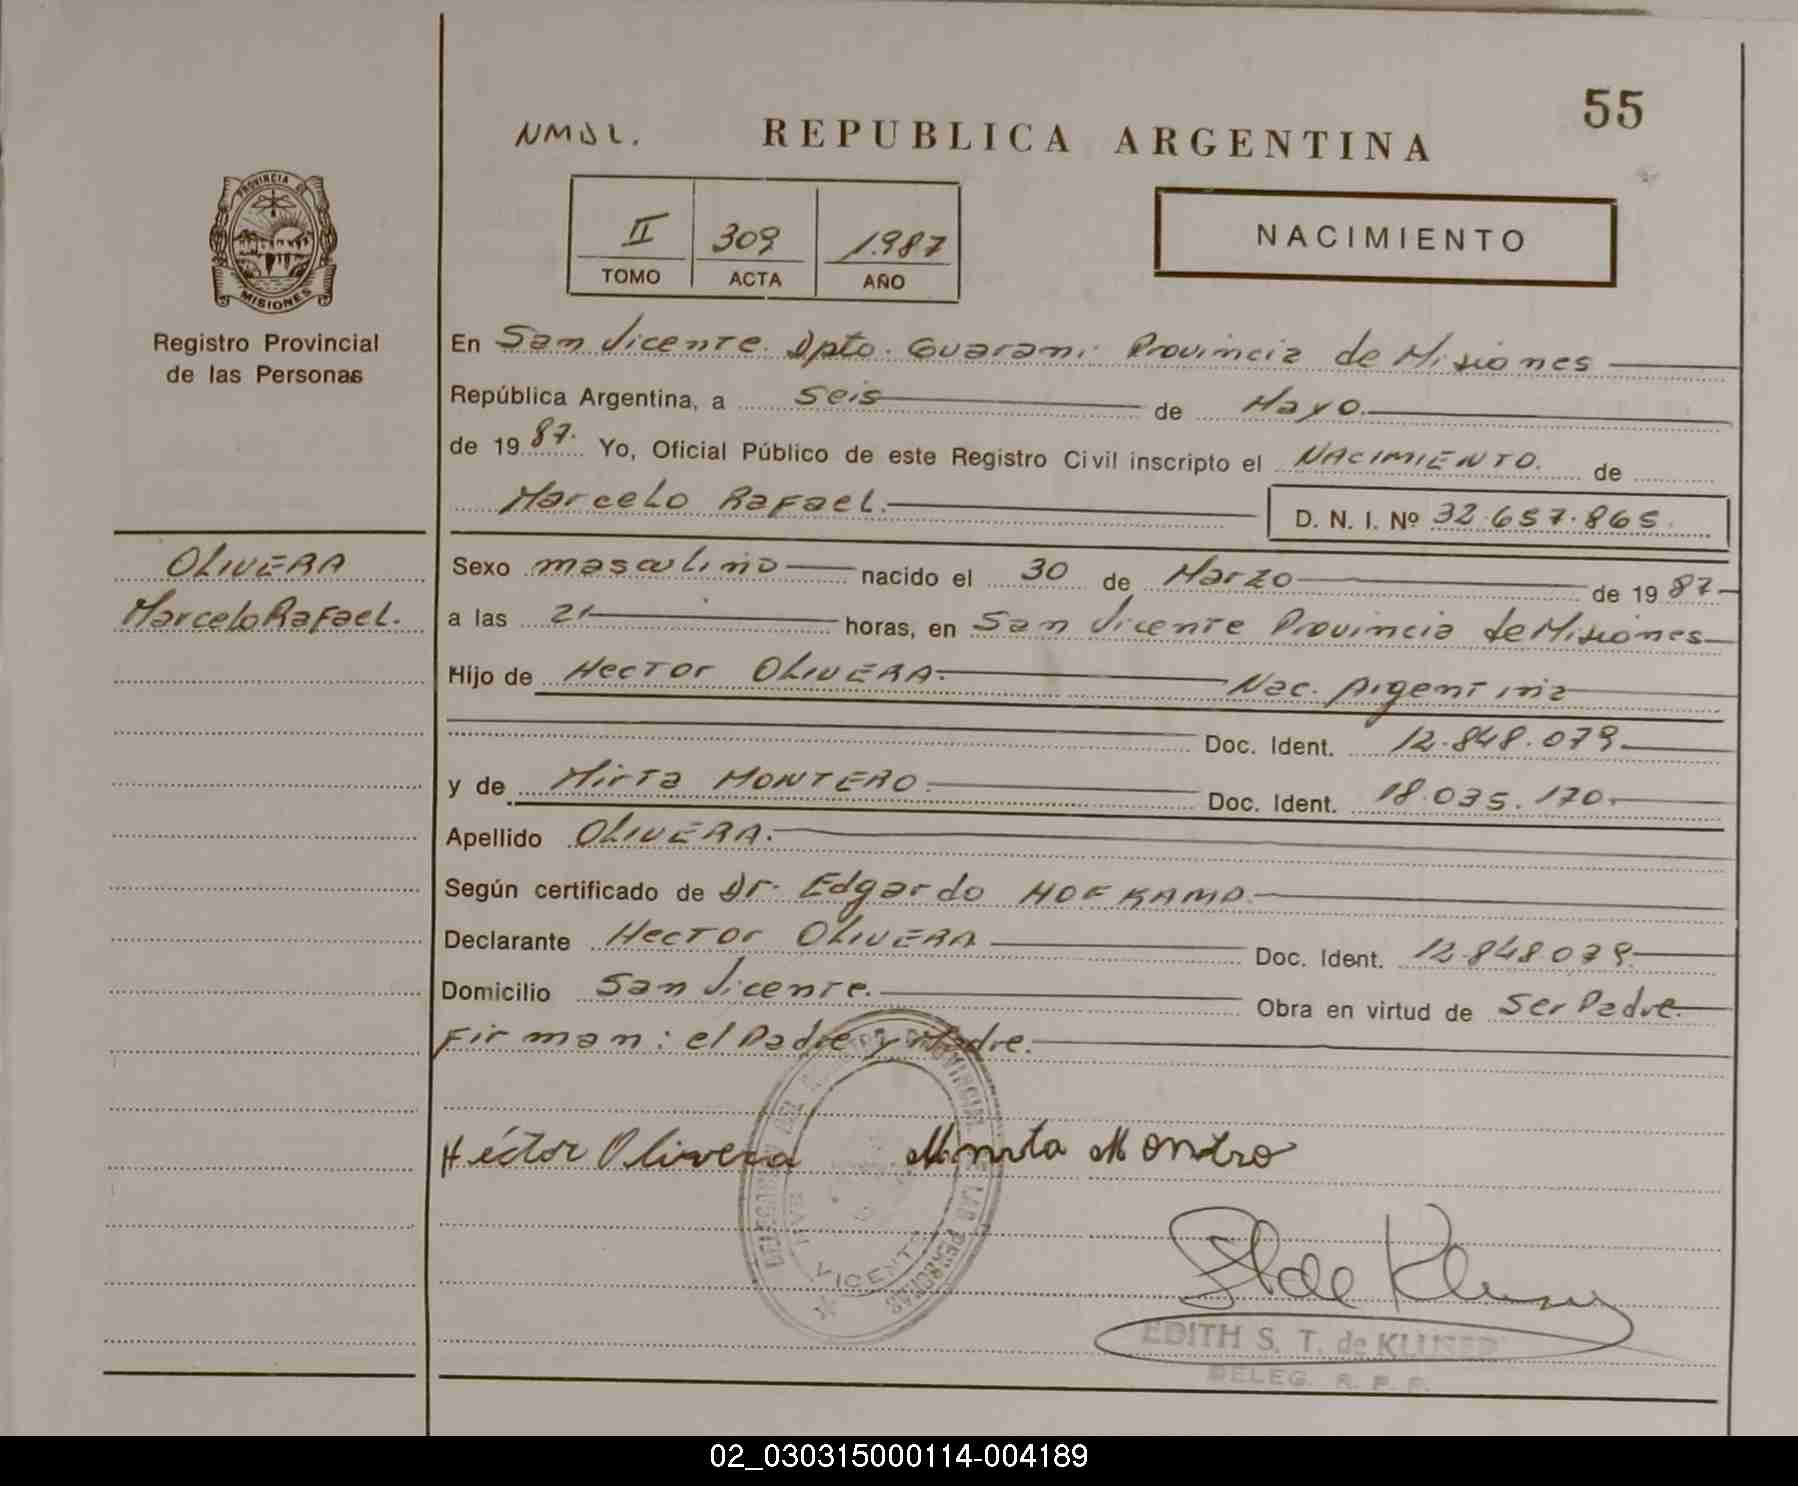 55
NMDL.
REPUBLICA ARGENTINA
PROVINCIA DE
MISIONES
Registro Provincial
de las Personas
II 309 1.987
TOMO ACTA AÑO
NACIMIENTO
En San Vicente. Dpto. Guarani Provincia de Misiones
República Argentina, a seis de Mayo.
de 1987. Yo, Oficial Público de este Registro Civil inscripto el NACIMIENTO. de
Marcelo Rafael. D. N. I. Nº 32.657.865.
OLIVERA
Marcelo Rafael.
Sexo masculino nacido el 30 de Marzo de 1987
a las 21 horas, en San Vicente Provincia de Misiones
Hijo de Hector OLIVERA. Nac. Argentina
Doc. Ident. 12.848.079
y de Mirta MONTERO. Doc. Ident. 18.035.170.
Apellido OLIVERA.
Según certificado de Dr. Edgardo HOFKAMP.
Declarante Hector OLIVERA Doc. Ident. 12.848.079.
Domicilio San Vicente. Obra en virtud de Ser Padre.
Firman: el Padre y Madre.
Héctor Olivera Mirta Montro
VICENTE
EDITH S. T. de KLUSER
DELEG. R. P. P.
02_030315000114-004189